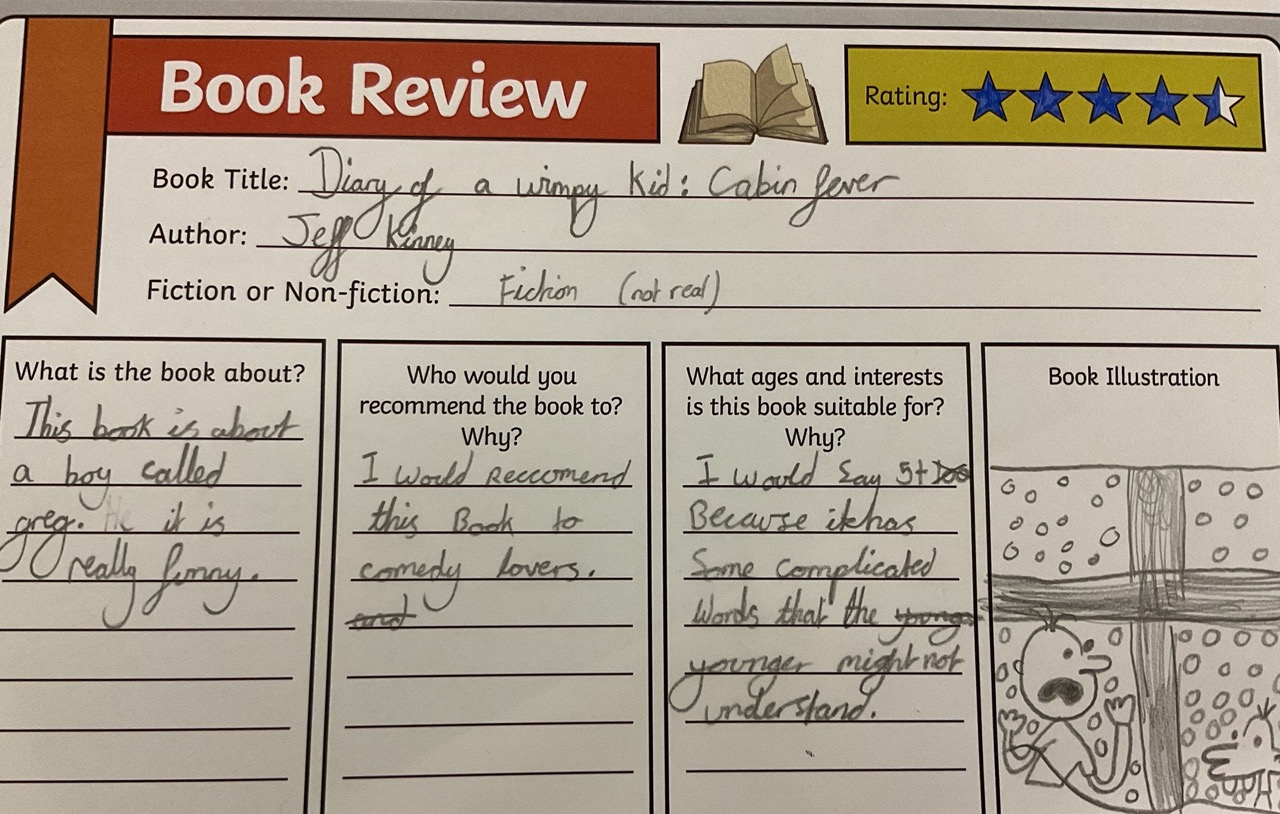 Book Review
Rating:
Book Title: Diary of a wimpy Kid: Cabin fever
Author: Jeff Kinney
Fiction or Non-fiction: Fiction (not real)
What is the book about?
This book is about
a boy called
greg. He it is
really funny.
Who would you
recommend the book to?
Why?
I would Reccomend
this Book to
comedy lovers.
and
What ages and interests
is this book suitable for?
Why?
I would Say 5+
Because it has
Some complicated
words that the young
younger might not
understand.
Book Illustration